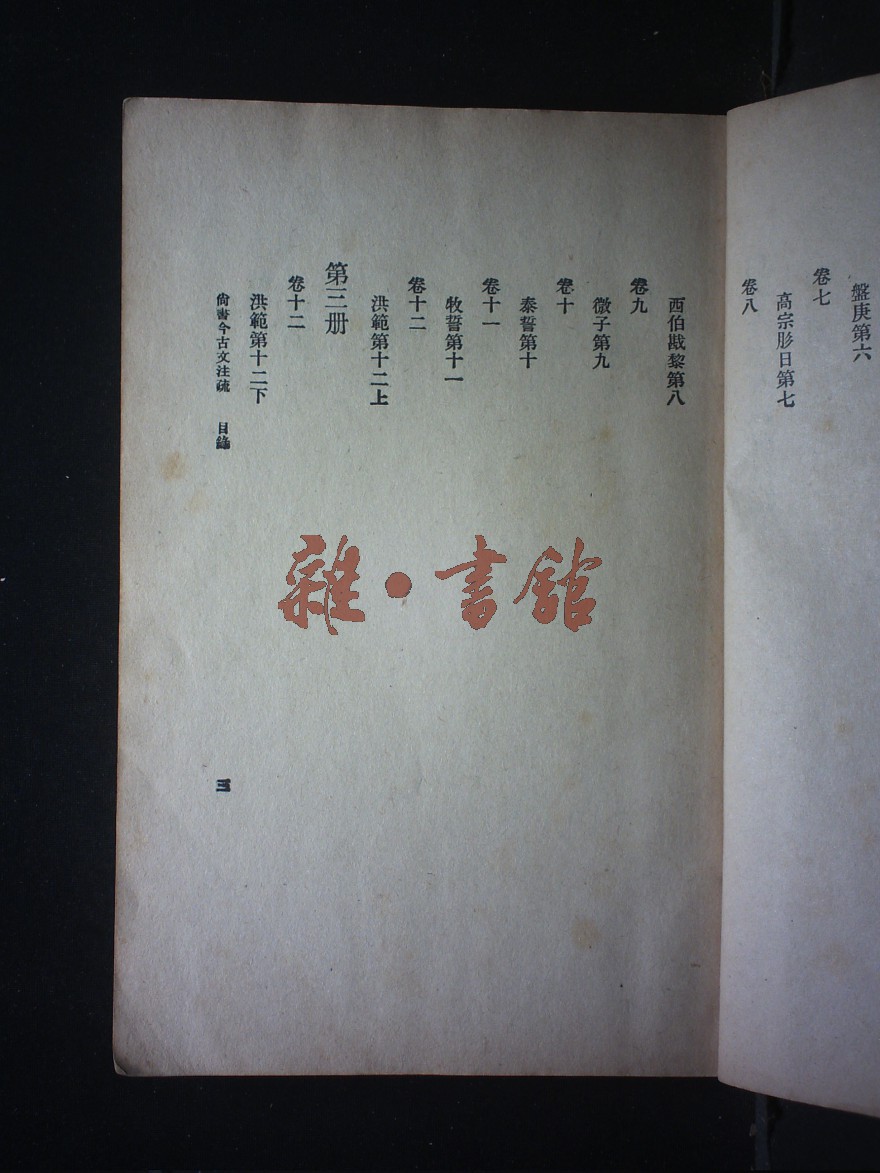 盤庚第六
卷七
高宗肜日第七
卷八
西伯戡黎第八
卷九
微子第九
卷十
泰誓第十
卷十一
牧誓第十一
卷十二
洪範第十二上
第三册
卷十二
洪範第十二下
尚書今古文注疏 目錄
三
雜·書館